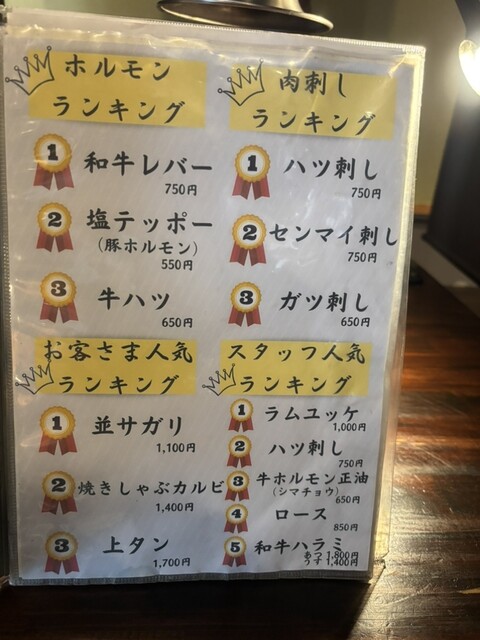 ホルモン
ランキング
1 和牛レバー
750円
2 塩テッポー
(豚ホルモン)
550円
3 牛ハツ
650円
肉刺し
ランキング
1 ハツ刺し
750円
2 センマイ刺し
750円
3 ガツ刺し
650円
お客さま人気
ランキング
1 並サガリ
1,100円
2 焼きしゃぶカルビ
1,400円
3 上タン
1,700円
スタッフ人気
ランキング
1 ラムユッケ
1,000円
2 ハツ刺し
750円
3 牛ホルモン正油
(シマチョウ)
650円
4 ロース
850円
5 和牛ハラミ
あつ 1,800円
うす 1,400円